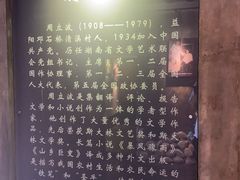 周立波（1908——1979），益
阳邓石桥清溪村人，1934加入中
国共产党。历任湖南省文学艺术联
合会党组书记、主席，第一、二届
国作协理事，第一、二、三届全国
人大代表，第五届全国政协委员
周立波是集翻译、评论、报告
文学和小说创作为一体的学者型作
家，他创作了大量优秀的文学
作品，先后荣获斯大林文艺奖
文学奖。长篇小说《暴风骤雨》
《山乡巨变》译成多种外文出版
描写我国农村生活和农民
"铁笔"和"